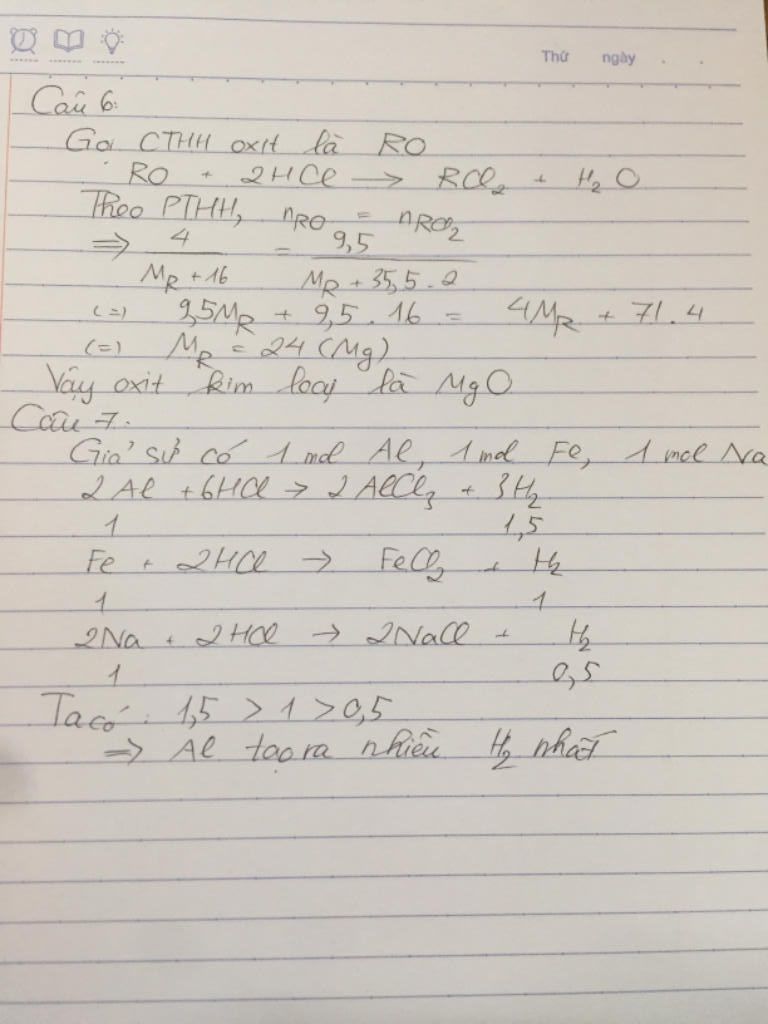 Thứ ngày . .
Câu 6:
Gọi CTHH oxit là RO
RO + 2HCl → RCl₂ + H₂O
Theo PTHH, nRO = nRCl₂
⇒ 4/(MR + 16) = 9,5/(MR + 35,5 . 2)
(=) 9,5MR + 9,5 . 16 = 4MR + 71 . 4
(=) MR = 24 (Mg)
Vậy oxit kim loại là MgO
Câu 7:
Giả sử có 1 mol Al, 1 mol Fe, 1 mol Na
2Al + 6HCl → 2AlCl₃ + 3H₂
1 1,5
Fe + 2HCl → FeCl₂ + H₂
1 1
2Na + 2HCl → 2NaCl + H₂
1 0,5
Ta có: 1,5 > 1 > 0,5
⇒ Al tạo ra nhiều H₂ nhất